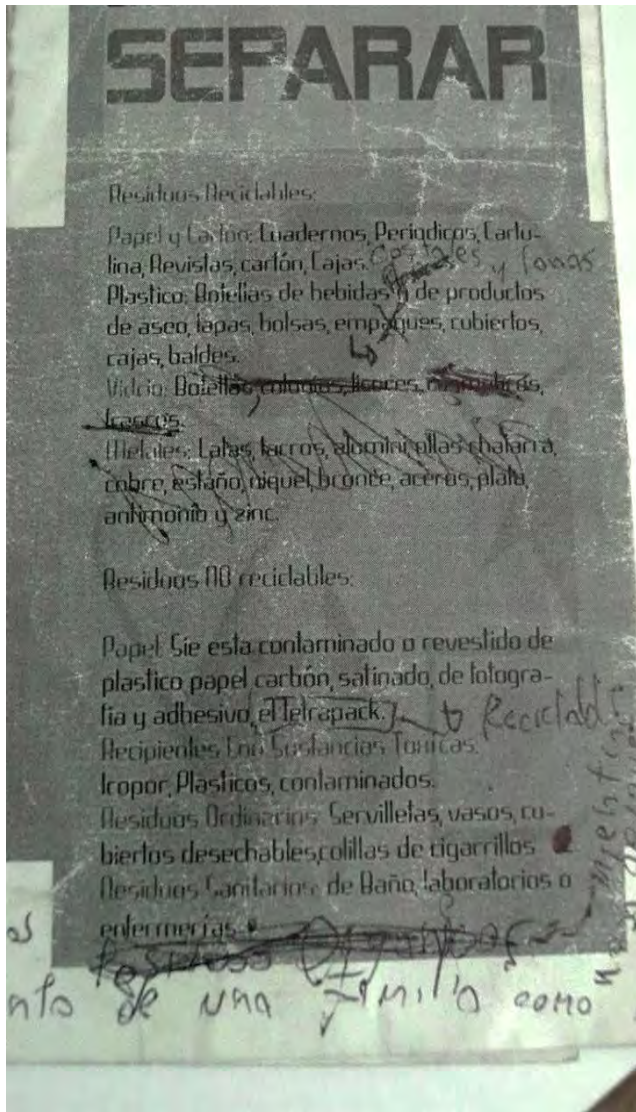 SEPARAR
Residuos Reciclables:
Papel y Carton: Cuadernos, Periodicos, Cartu-
lina, Revistas, cartón, Cajas. Costales y lonas
Plastico: Botellas de bebidas y de productos
de aseo, tapas, bolsas, empaques, cubiertos,
cajas, baldes.
Vidrio: Botellas, colonias, licores,
frascos.
Metales: Latas, tarros, alumini, ollas chatarra,
cobre, estaño, niquel, bronce, aceros, plata,
antimonio y zinc.
Residuos NO reciclables:
Papel: Sie esta contaminado o revestido de
plastico papel carbón, satinado, de fotogra-
fia y adhesivo, el Tetrapack. Reciclable
Recipientes Con Sustancias Toxicas.
Icopor, Plasticos, contaminados.
Residuos Ordinarios: Servilletas, vasos, cu-
biertos desechables, colillas de cigarrillos
Residuos Sanitarios: de Baño, laboratorios o
enfermerías.
Residuos
de una familia como